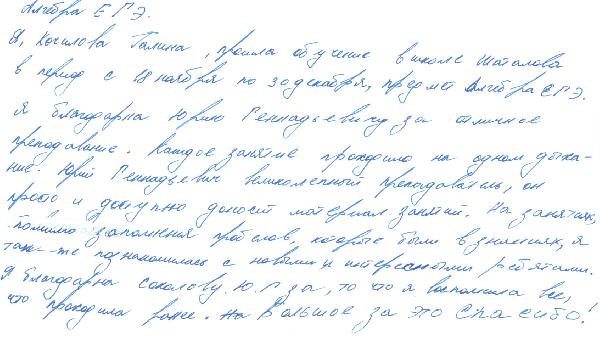 Алгебра ЕГЭ.
Я, Кочилова Галина, прошла обучение в школе Шаталова
в период с 18 ноября по 30 декабря, предмет Алгебра ЕГЭ.
Я благодарна Юрию Геннадьевичу за отличное
преподавание. Каждое занятие проходило на одном дыха-
ние. Юрий Геннадьевич великолепный преподаватель, он
просто и доступно доносит материал занятий. На занятиях,
помимо заполнения пробелов, которые были в знаниях, я
так-же познакомилась с новыми и интересными ребятами.
Я благодарна Соколову Ю.Г за, то что я вспомнила все,
что проходила ранее. Большое за это спасибо!